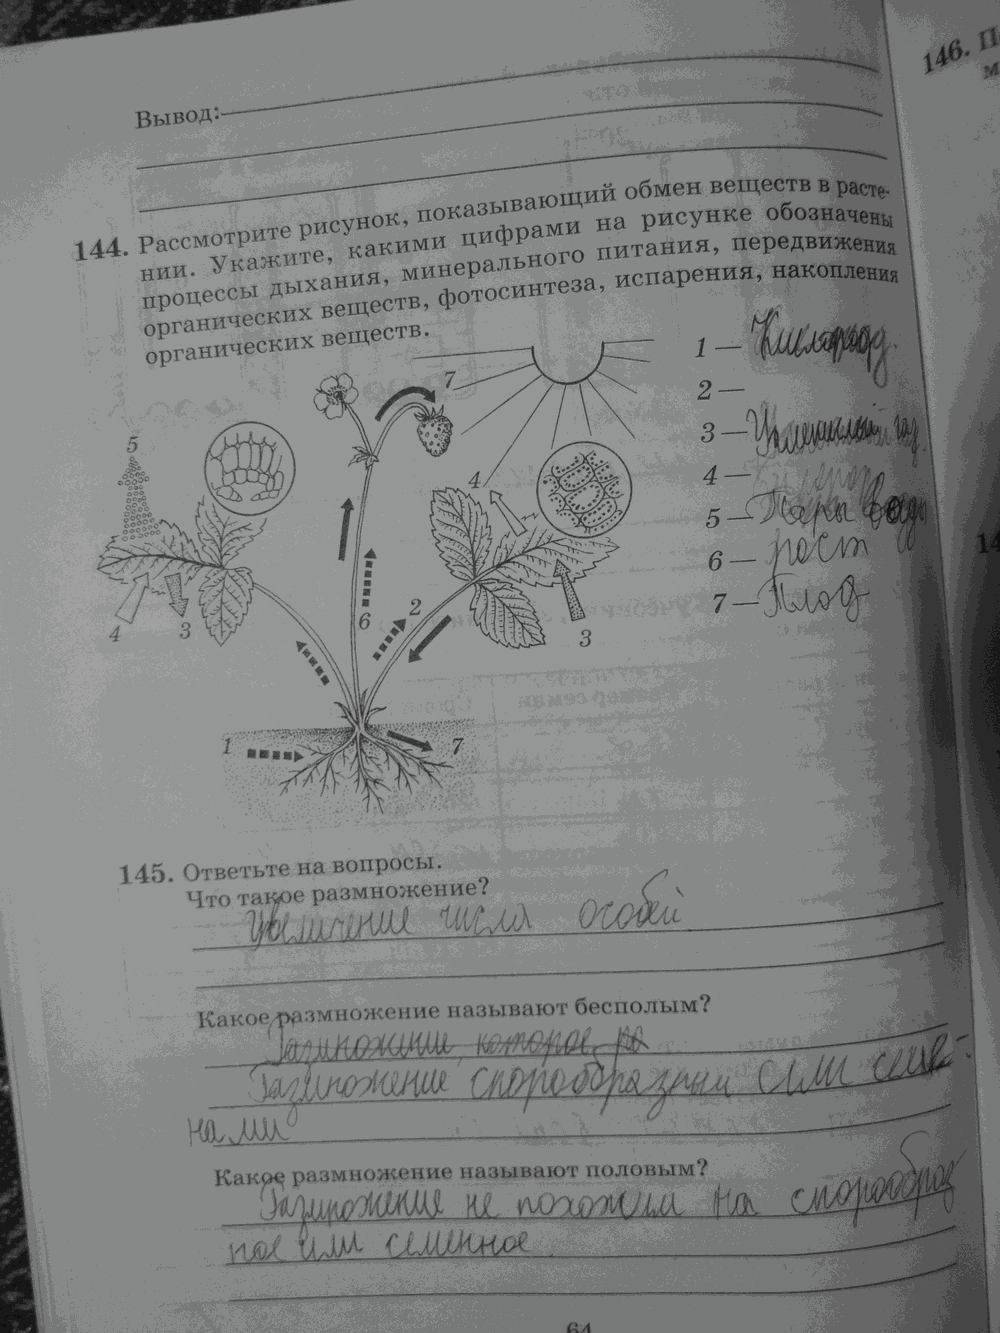 146. П
м
Вывод:
144. Рассмотрите рисунок, показывающий обмен веществ в расте-
нии. Укажите, какими цифрами на рисунке обозначены
процессы дыхания, минерального питания, передвижения
органических веществ, фотосинтеза, испарения, накопления
органических веществ.
1 — Кислород.
2 —
3 — Углекислый газ.
4 —
5 — Пары воды
6 — рост
7 — Плод
7
5
4
6
2
4
3
3
1
7
14
145. Ответьте на вопросы.
Что такое размножение?
Увеличение числа особей
Какое размножение называют бесполым?
Размножение, которое ра
Размножение спорообразный или семе-
нами
Какое размножение называют половым?
Размножение не похожем на спорообраз
ное или семенное
64